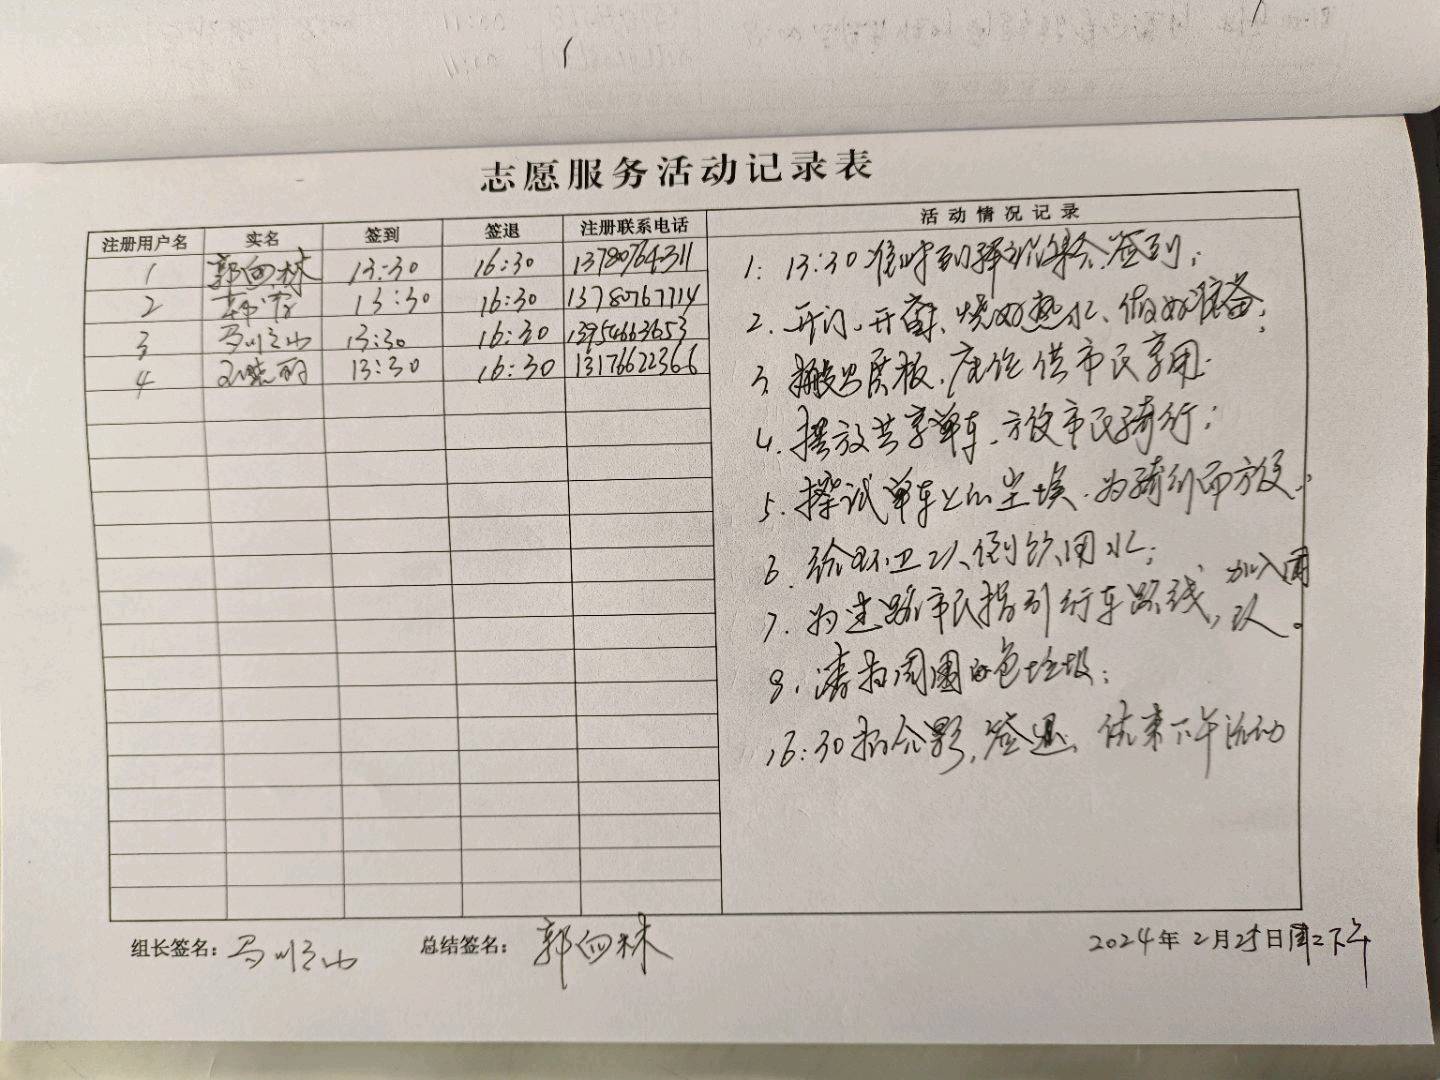 志愿服务活动记录表
注册用户名 实名 签到 签退 注册联系电话 活动情况记录
1 郭向林 13:30 16:30 13780764311
2 13:30 16:30 13780767714
3 马顺山 13:30 16:30 13954663653
4 13:30 16:30 13176622366
1. 13:30准时到驿站集合、签到；
2. 开门、开窗、烧好热水、做好准备；
3. 搬出展板、座位供市民享用.
4. 摆放共享单车、方便市民骑行；
5. 擦试单车上的尘埃、为骑行而方便.
6. 给环卫工人倒饮用水；
7. 为迷路市民指引行车路线，加入团队。
8. 清扫周围白色垃圾；
16:30拍合影，签退、结束下午活动
组长签名：马顺山 总结签名：郭向林 2024年2月25日周二下午